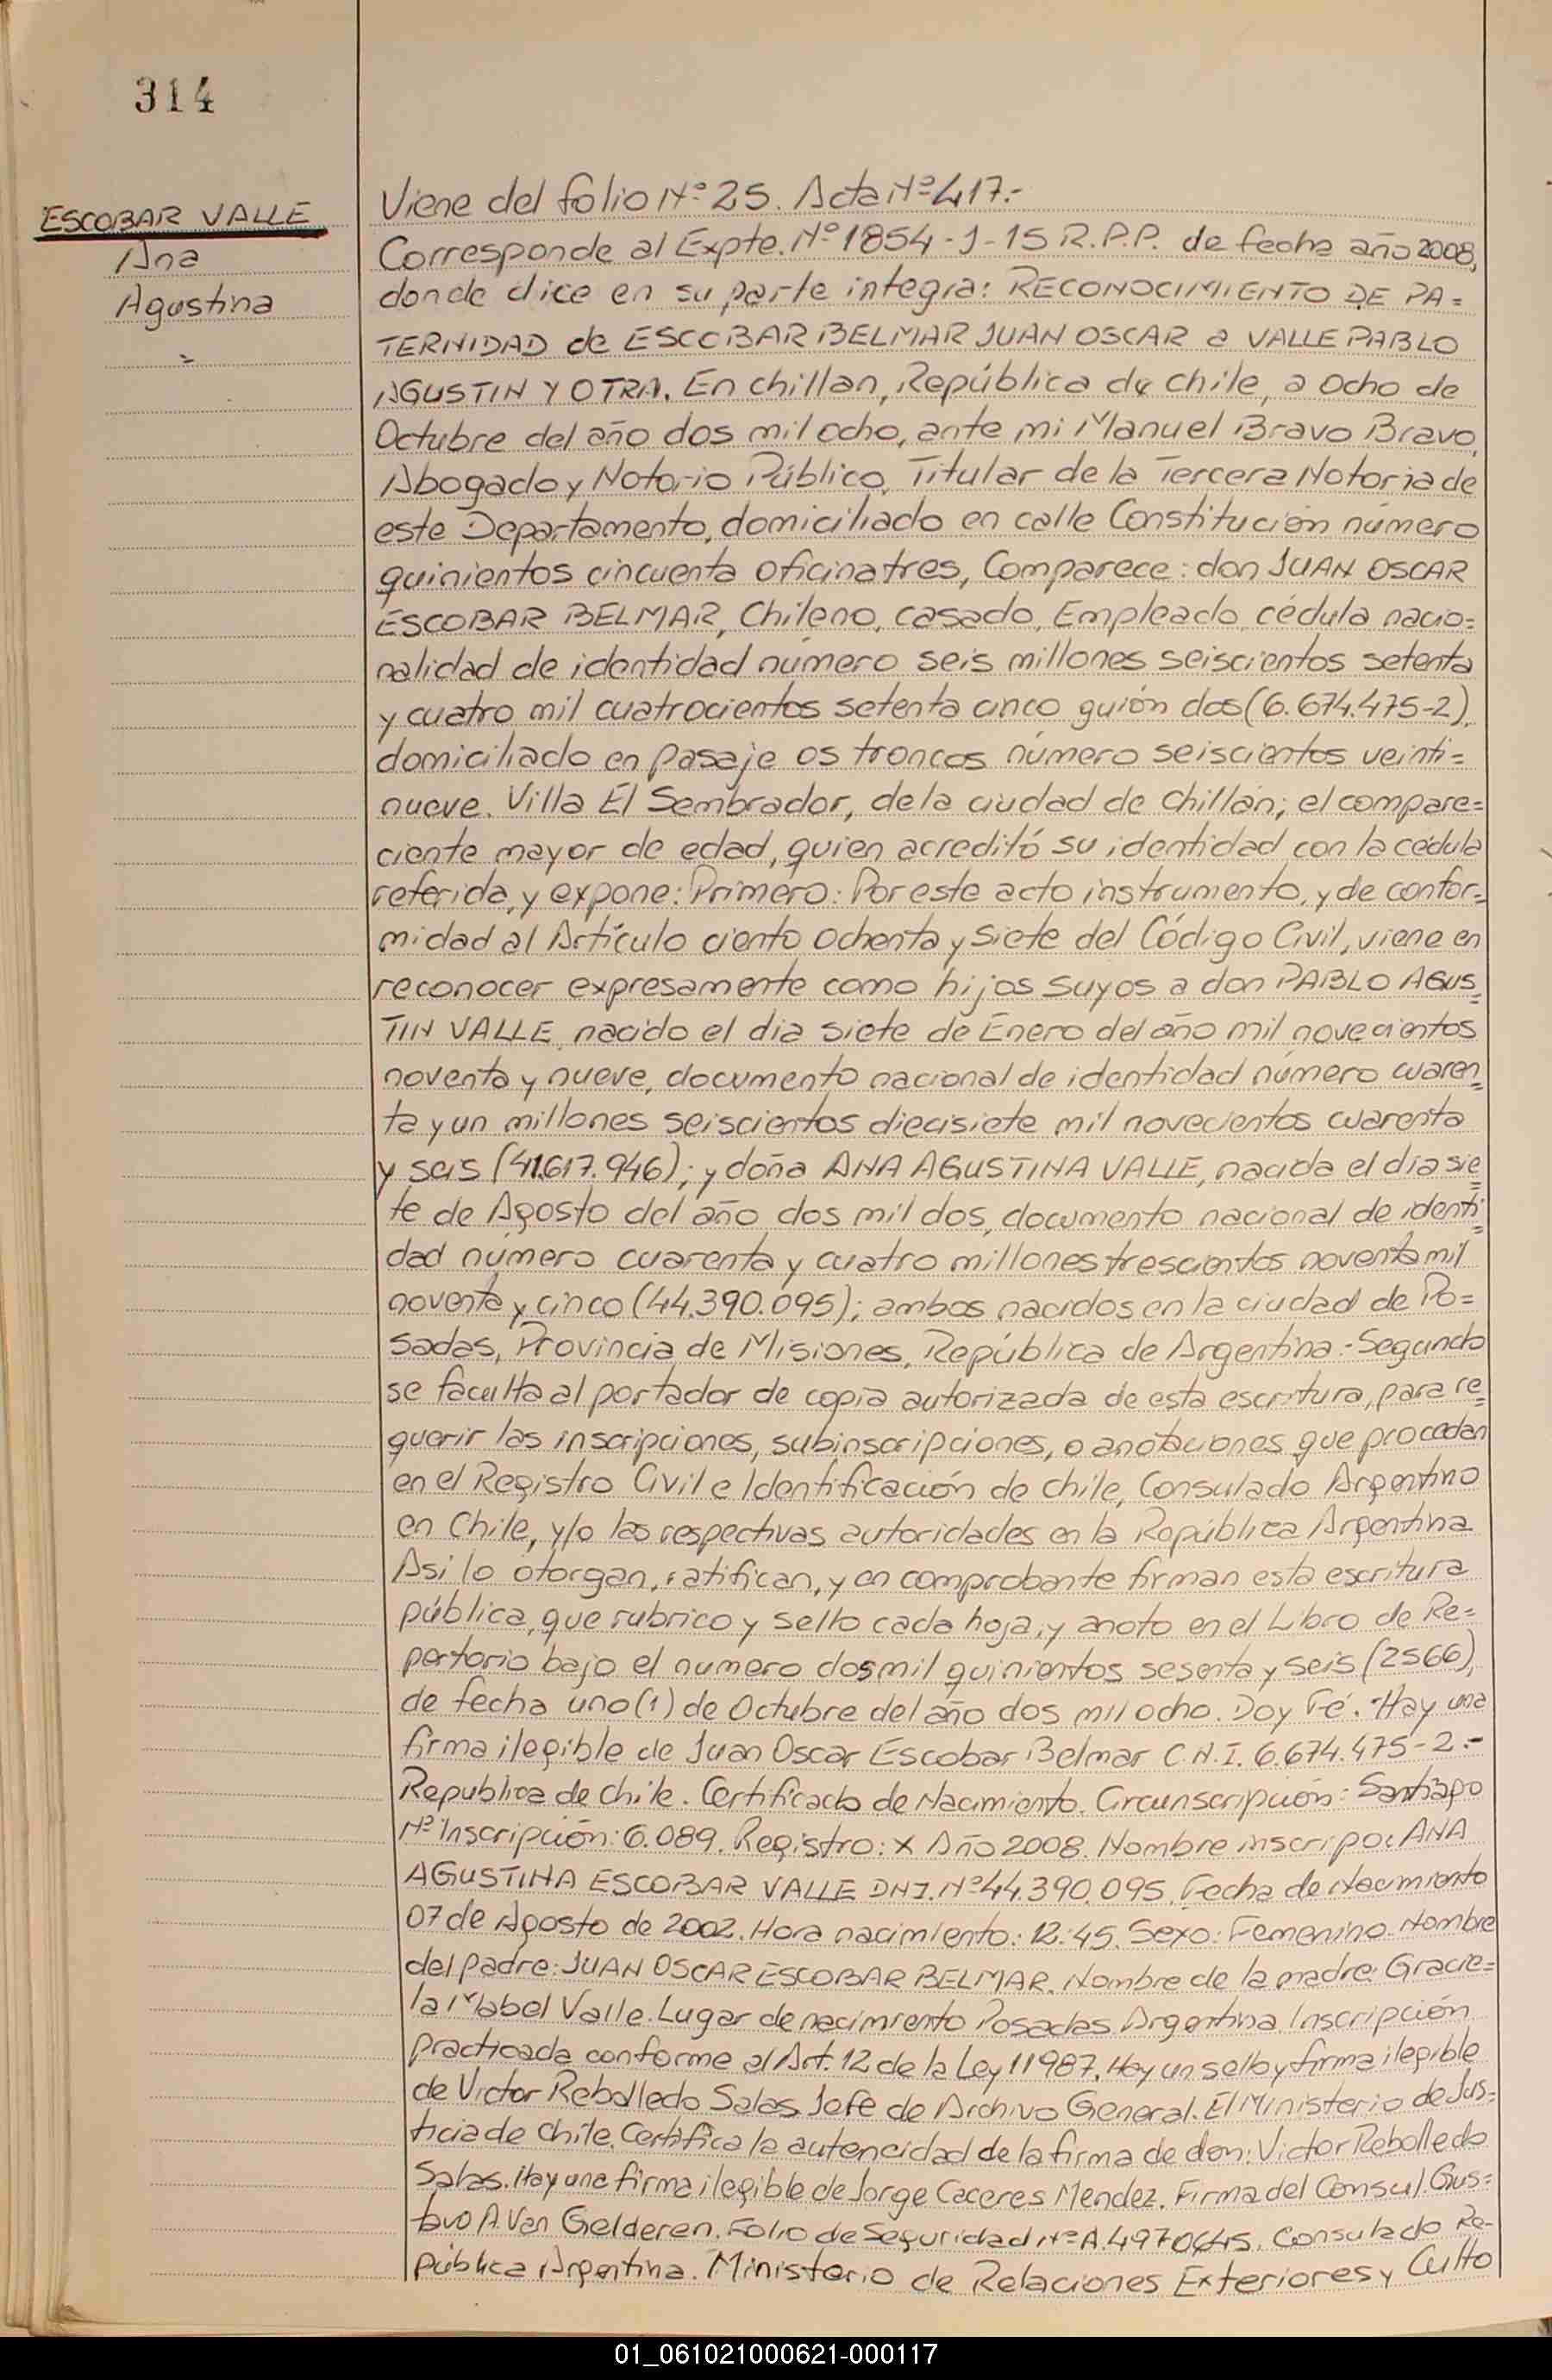 314
ESCOBAR VALLE
Ana
Agustina
=
Viene del folio Nº 25. Acta Nº 417.-
Corresponde al Expte. Nº 1854-J-15 R.P.P. de fecha año 2008,
donde dice en su parte integra: RECONOCIMIENTO DE PA=
TERNIDAD de ESCOBAR BELMAR JUAN OSCAR a VALLE PABLO
AGUSTIN Y OTRA. En chillan, República de chile, a ocho de
Octubre del año dos mil ocho, ante mi Manuel Bravo Bravo,
Abogado y Notario Público, Titular de la Tercera Notoria de
este Departamento, domiciliado en calle Constitución número
quinientos cincuenta oficina tres, Comparece: don JUAN OSCAR
ESCOBAR BELMAR, Chileno, casado, Empleado, cédula nacio=
nalidad de identidad número seis millones seiscientos setenta
y cuatro mil cuatrocientos setenta cinco guión dos (6.674.475-2),
domiciliado en pasaje os troncos número seiscientos veinti=
nueve. Villa El Sembrador, de la ciudad de chillán; el compare=
ciente mayor de edad, quien acreditó su identidad con la cédula
referida, y expone: Primero: Por este acto instrumento, y de confor=
midad al Artículo ciento ochenta y siete del Código Civil, viene en
reconocer expresamente como hijos suyos a don PABLO AGUS=
TIN VALLE, nacido el dia siete de Enero del año mil novecientos
noventa y nueve, documento nacional de identidad número cuaren=
ta y un millones seiscientos diecisiete mil novecientos cuarenta
y seis (41.617.946); y doña ANA AGUSTINA VALLE, nacida el día sie=
te de Agosto del año dos mil dos, documento nacional de identi=
dad número cuarenta y cuatro millones trescientos noventa mil
noventa y cinco (44.390.095); ambos nacidos en la ciudad de Po=
sadas, Provincia de Misiones, República de Argentina.-Segundo
se faculta al portador de copia autorizada de esta escritura, para re=
querir las inscripciones, subinscripciones, o anotaciones que procedan
en el Registro Civil e Identificación de chile, Consulado Argentino
en Chile, y/o las respectivas autoridades en la República Argentina
Asi lo otorgan, ratifican, y en comprobante firman esta escritura
pública, que rubrico y sello cada hoja, y anoto en el Libro de Re=
pertorio bajo el numero dosmil quinientos sesenta y seis (2566),
de fecha uno (1) de Octubre del año dos mil ocho. Doy Fé. Hay una
firma ilegible de Juan Oscar Escobar Belmar C.N.I. 6.674.475-2.-
Republica de chile. Certificado de Nacimiento. Circunscripción: Santiago
Nº Inscripción: 6.089. Registro: X Año 2008. Nombre inscripo: ANA
AGUSTINA ESCOBAR VALLE DNI. Nº 44.390.095. Fecha de Nacimiento
07 de Agosto de 2002. Hora nacimiento: 12:45. Sexo: Femenino. Nombre
del padre: JUAN OSCAR ESCOBAR BELMAR. Nombre de la madre: Gracie=
la Mabel Valle. Lugar de nacimiento Posadas Argentina. Inscripción
practicada conforme al Art. 12 de la Ley 11987. Hay un sello y firma ilegible
de Victor Rebolledo Salas Jefe de Archivo General. El Ministerio de Jus=
ticia de chile. Certifica la autencidad de la firma de don: Victor Rebolledo
Salas. Hay una firma ilegible de Jorge Caceres Mendez. Firma del Consul. Gus=
tavo A. Van Gelderen. Folio de Seguridad Nº A. Consulado Re-
pública Argentina. Ministerio de Relaciones Exteriores y Culto
01_061021000621-000117